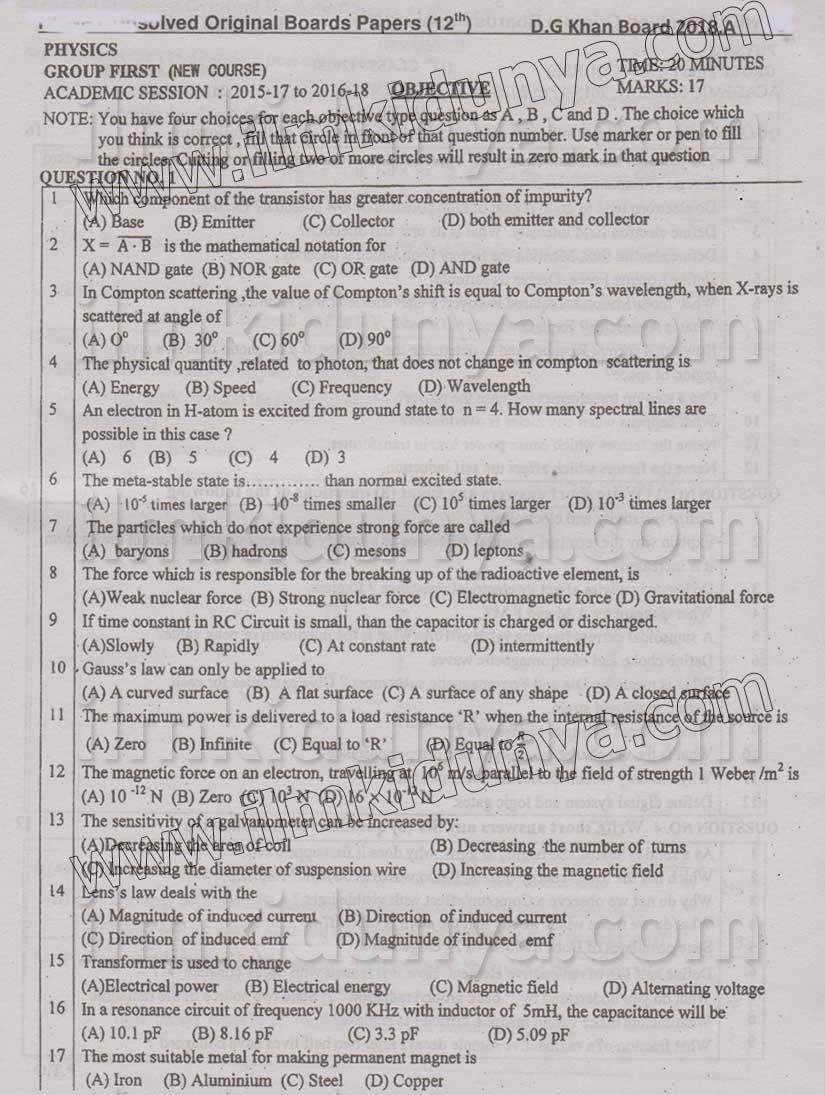 solved Original Boards Papers (12th) D.G Khan Board 2018.A
PHYSICS
GROUP FIRST (NEW COURSE) TIME: 20 MINUTES
ACADEMIC SESSION : 2015-17 to 2016-18 OBJECTIVE MARKS: 17
NOTE: You have four choices for each objective type question as A , B , C and D . The choice which
you think is correct , fill that circle in front of that question number. Use marker or pen to fill
the circles. Cutting or filling two or more circles will result in zero mark in that question
QUESTION NO. 1
1 Which component of the transistor has greater concentration of impurity?
(A) Base (B) Emitter (C) Collector (D) both emitter and collector
2 X = A̅ ̅·̅ ̅B̅ is the mathematical notation for
(A) NAND gate (B) NOR gate (C) OR gate (D) AND gate
3 In Compton scattering ,the value of Compton's shift is equal to Compton's wavelength, when X-rays is
scattered at angle of
(A) O⁰ (B) 30⁰ (C) 60⁰ (D) 90⁰
4 The physical quantity ,related to photon, that does not change in compton scattering is
(A) Energy (B) Speed (C) Frequency (D) Wavelength
5 An electron in H-atom is excited from ground state to n = 4. How many spectral lines are
possible in this case ?
(A) 6 (B) 5 (C) 4 (D) 3
6 The meta-stable state is............. than normal excited state.
(A) 10⁻⁵ times larger (B) 10⁻⁸ times smaller (C) 10⁵ times larger (D) 10⁻³ times larger
7 The particles which do not experience strong force are called
(A) baryons (B) hadrons (C) mesons (D) leptons
8 The force which is responsible for the breaking up of the radioactive element, is
(A)Weak nuclear force (B) Strong nuclear force (C) Electromagnetic force (D) Gravitational force
9 If time constant in RC Circuit is small, than the capacitor is charged or discharged.
(A)Slowly (B) Rapidly (C) At constant rate (D) intermittently
10 Gauss's law can only be applied to
(A) A curved surface (B) A flat surface (C) A surface of any shape (D) A closed surface
11 The maximum power is delivered to a load resistance 'R' when the internal resistance of the source is
(A) Zero (B) Infinite (C) Equal to 'R' (D) Equal to R/2
12 The magnetic force on an electron, travelling at 10⁶ m/s parallel to the field of strength 1 Weber /m² is
(A) 10⁻¹² N (B) Zero (C) 10³ N (D) 16 × 10⁻¹² N
13 The sensitivity of a galvanometer can be increased by:
(A)Decreasing the area of coil (B) Decreasing the number of turns
(C) Increasing the diameter of suspension wire (D) Increasing the magnetic field
14 Lens's law deals with the
(A) Magnitude of induced current (B) Direction of induced current
(C) Direction of induced emf (D) Magnitude of induced emf
15 Transformer is used to change
(A)Electrical power (B) Electrical energy (C) Magnetic field (D) Alternating voltage
16 In a resonance circuit of frequency 1000 KHz with inductor of 5mH, the capacitance will be
(A) 10.1 pF (B) 8.16 pF (C) 3.3 pF (D) 5.09 pF
17 The most suitable metal for making permanent magnet is
(A) Iron (B) Aluminium (C) Steel (D) Copper
www.ilmkidunya.com
www.ilmkidunya.com
ilmkidunya.com
ilmkidunya.com
ilmkidunya.com
ilmkidunya.com